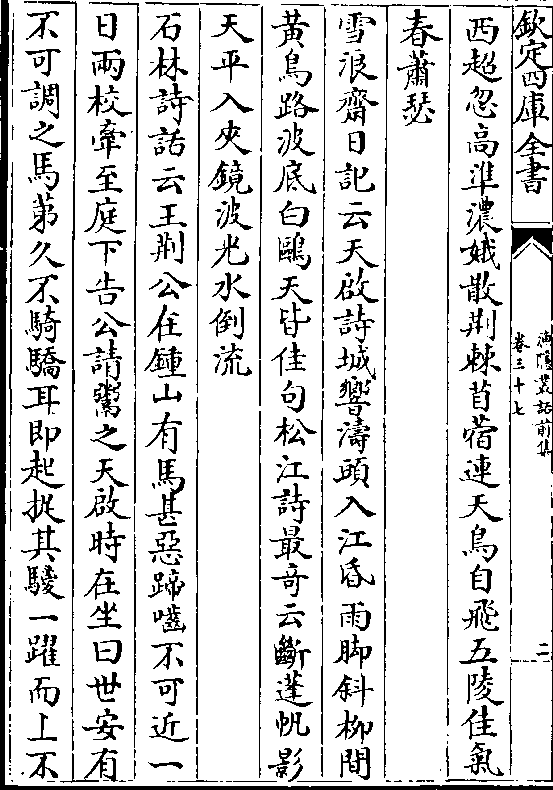 欽定四庫全書
漁隱叢話前集
卷三十七
二
西超忽高準濃娥散荆棘苜蓿連天鳥自飛五陵佳氣
春蕭瑟
雪浪齋日記云天啟詩城響濤頭入江昏雨脚斜柳間
黃鳥路波底白鷗天皆佳句松江詩最竒云斷蓬帆影
天平入夾鏡波光水倒流
石林詩話云王荆公在鍾山有馬甚惡蹄嚙不可近一
日兩校牽至庭下告公請鬻之天啟時在坐曰世安有
不可調之馬苐久不騎驕耳即起捉其騣一躍而上不